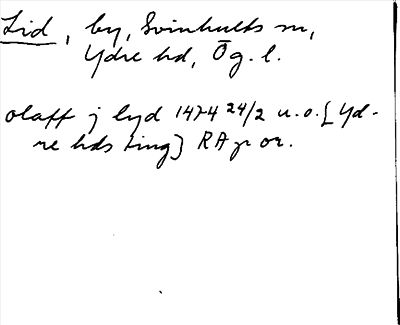 Lid, by, Svinhults sn,
Ydre hd, Ög. l.
olaff j lyd 1474 24/2 u.o. [Yd-
re hds ting] RA p or.